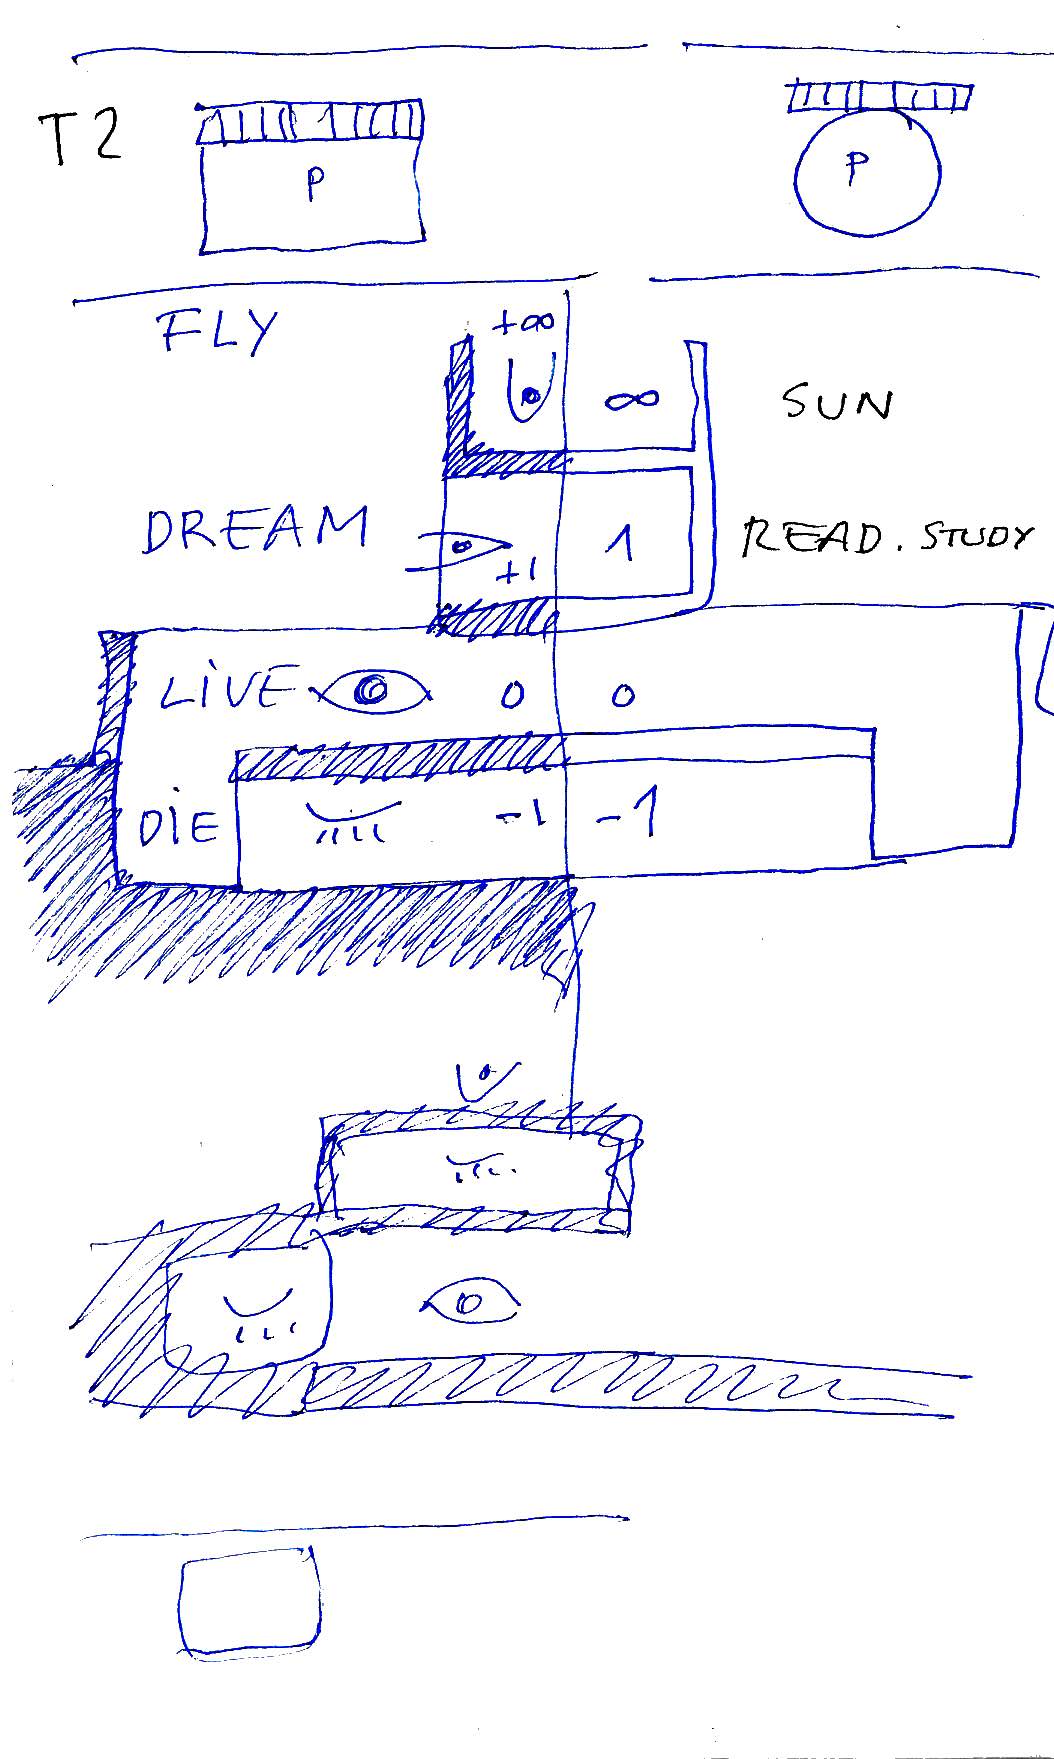 T2
P
P
FLY
+∞
∞
SUN
DREAM
+1
1
READ. STUDY
LiVE
0
0
DiE
-1
-1